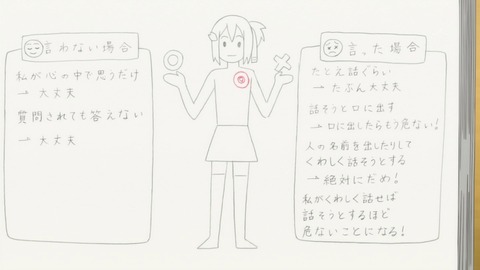 言わない場合
私が心の中で思うだけ
→ 大丈夫
質問されても答えない
→ 大丈夫
言った場合
たとえ話ぐらい
→ たぶん大丈夫
話そうと口に出す
→ 口に出したらもう危ない!
人の名前を出したりして
くわしく話そうとする
→ 絶対にだめ!
私がくわしく話せば
話そうとするほど
危ないことになる!